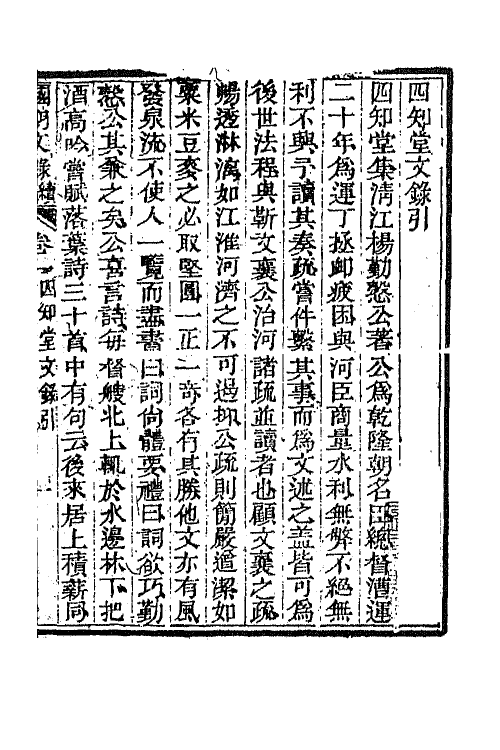 四知堂文錄引
四知堂集淸江楊勤慤公著公爲乾隆朝名臣總督漕運
二十年爲運丁拯卹疲困與河臣商量水利無弊不絕無
利不興予讀其奏疏嘗件繫其事而爲文述之蓋皆可爲
後世法程與靳文襄公治河諸疏並讀者也顧文襄之疏
暢透淋漓如江淮河濟之不可遏抑公疏則簡嚴遒潔如
粟米豆麥之必取堅圓一正一奇各有其勝他文亦有風
發泉流不使人一覽而盡書曰詞尙體要禮曰詞欲巧勤
慤公其兼之矣公喜言詩每督艘北上輒於水邊林下把
酒高吟嘗賦落葉詩三十首中有句云後來居上積薪同
國朝文錄續 卷一四知堂文錄引 一